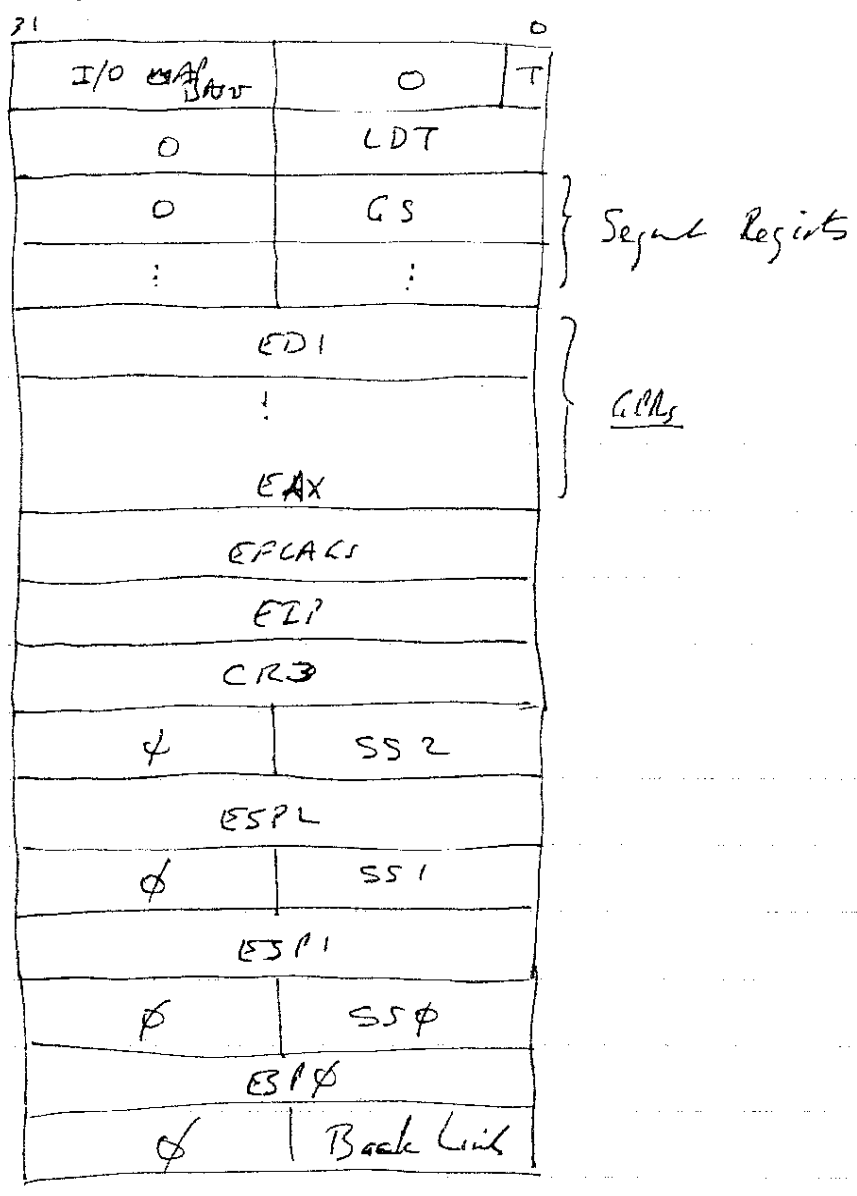 31 0
I/O MAP BASE 0 T
0 LDT
0 GS
Segment Registers
⋮ ⋮
EDI
⋮
GPRs
EAX
EFLAGS
EIP
CR3
0 SS2
ESP2
0 SS1
ESP1
0 SS0
ESP0
0 Back Link